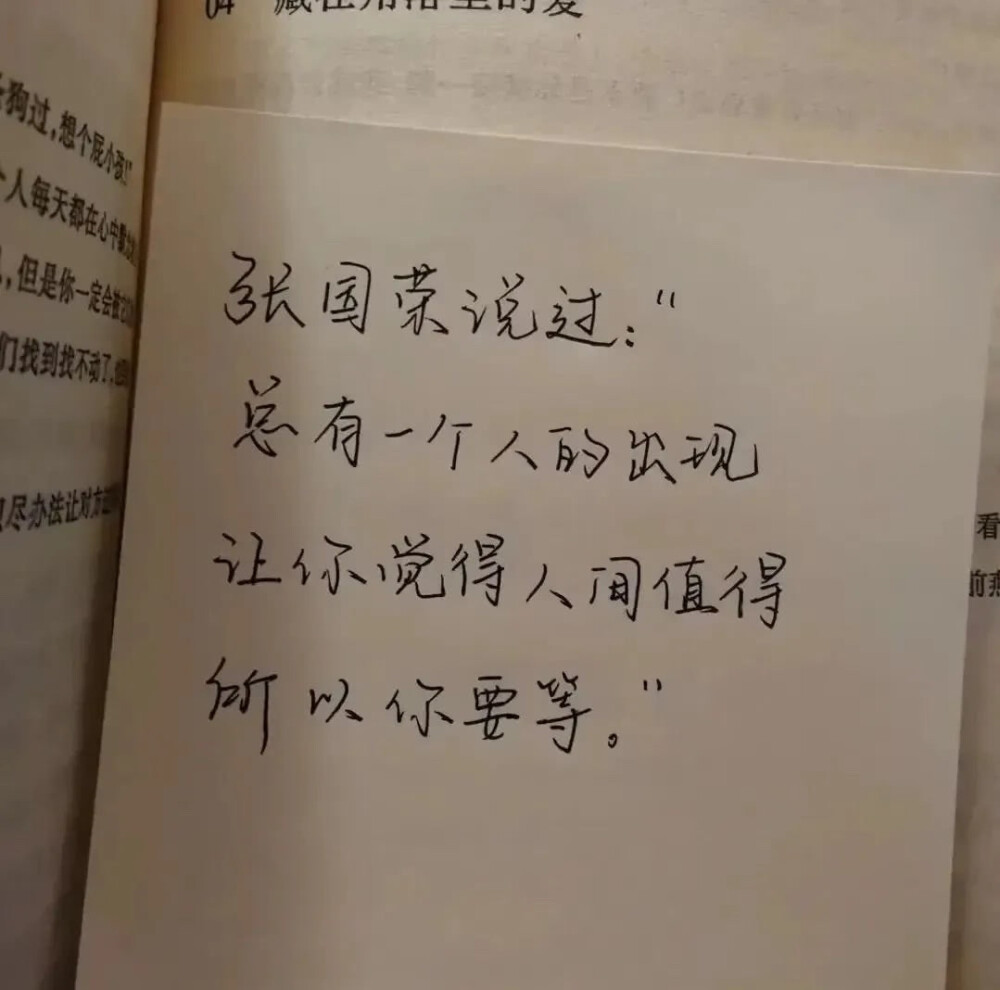 04 藏在角落里的爱
狗过，想个屁小孩！”
个人每天都在心中默
，但是你一定会被
们找到找不动了，
尽办法让对方
张国荣说过：“
总有一个人的出现
让你觉得人间值得
所以你要等。”
看
前